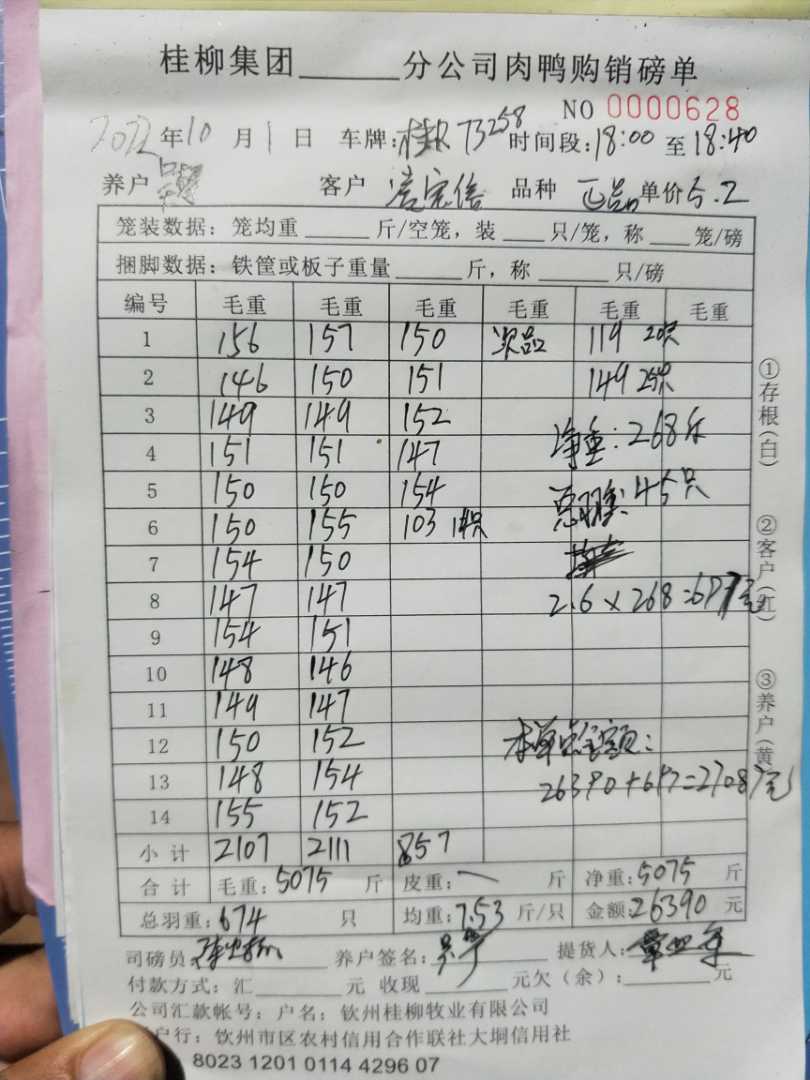 桂柳集团______分公司肉鸭购销磅单
NO 0000628
2022年10月1日 车牌:桂 73258 时间段:18:00至18:40
养户 客户 凌定信 品种 正品 单价5.2
笼装数据：笼均重____斤/空笼，装___只/笼，称___笼/磅
捆脚数据：铁筐或板子重量_____斤，称_____只/磅
编号 毛重 毛重 毛重 毛重 毛重 毛重
1 156 157 150 次品 119 20只
2 146 150 151 149 25只
3 149 149 152
净重:268斤
4 151 151 147
5 150 150 154
总羽数:45只
6 150 155 103 14只
7 154 150
8 147 147
2.6×268=697元
9 154 151
10 148 146
11 149 147
12 150 152
本单总金额:
13 148 154
26390+697=27087元
14 155 152
小计 2107 2111 857
合计 毛重:5075斤 皮重:\斤 净重:5075斤
总羽重:674只 均重:7.53斤/只 金额:26390元
司磅员 养户签名: 提货人:
付款方式：汇______元 收现______元欠（余）:______元
公司汇款帐号：户名：钦州桂柳牧业有限公司
户行：钦州市区农村信用合作联社大垌信用社
8023 1201 0114 4296 07
①存根(白)
②客户(红)
③养户(黄